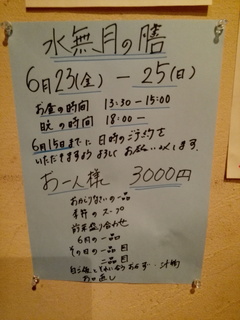 水無月の膳
6月23(金) — 25(日)
お昼の時間 13:30 - 15:00
晩の時間 18:00 —
6月15日までに 日時のご予約を
いただきますよう よろしく お願いいたします.
お一人様 3000円
おかわりないの一品
季節のスープ
前菜盛り合わせ
6月の一品
その日の一品目
二品目
汁物